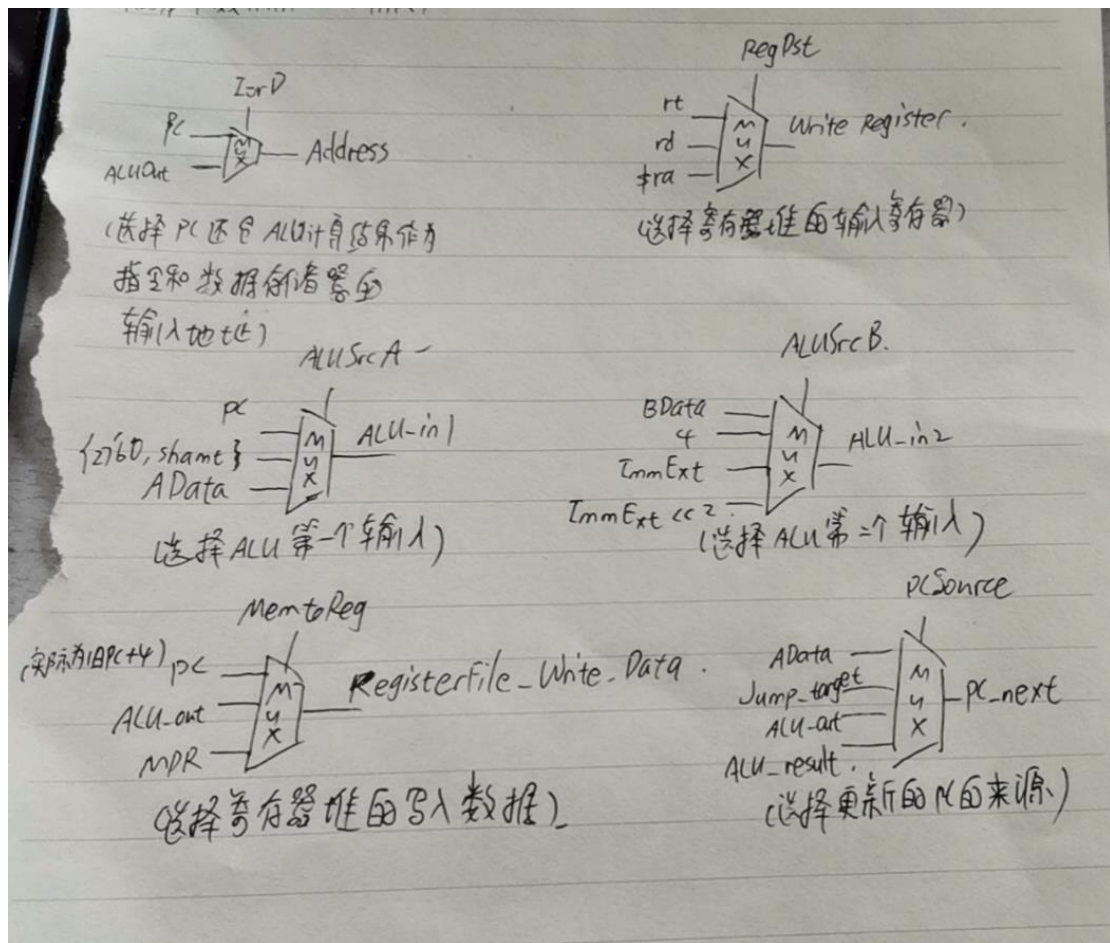 IorD
PC
ALUOut
MUX
Address
(选择PC还是ALU计算结果作为
指令和数据存储器的
输入地址)
RegDst
rt
rd
$ra
MUX
Write Register.
(选择寄存器堆的输入寄存器)
ALUSrcA
PC
{27'b0, shamt}
AData
MUX
ALU_in1
(选择ALU第一个输入)
ALUSrcB.
BData
4
ImmExt
ImmExt<<2.
MUX
ALU_in2
(选择ALU第二个输入)
MemtoReg
(实际为旧PC+4) PC
ALU_out
MDR
MUX
RegisterFile_Write_Data.
(选择寄存器堆的写入数据)
PCSource
AData
Jump_target
ALU_out
ALU_result.
MUX
PC_next
(选择更新的PC的来源)